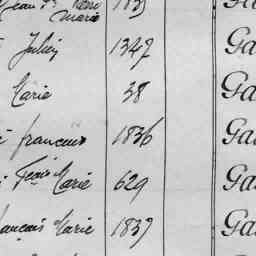 Marie
Julien 1347 Ga
Marie 38 Ga
françois 1836 Ga
Fçois Marie 629 Ga
ançois Marie 1837 Ga